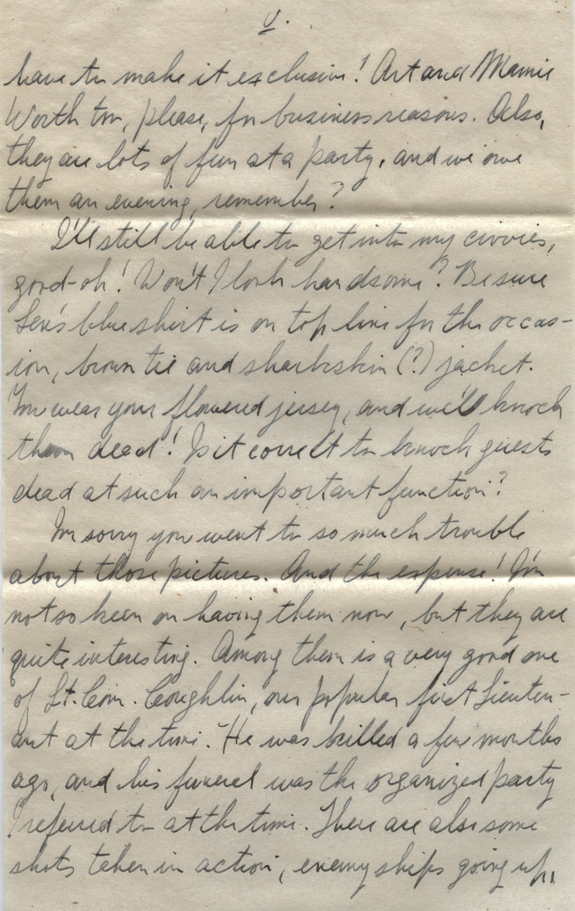 V.
have to make it exclusive! Art and Mamie
Worth too, please, for business reasons. Also,
they are lots of fun at a party, and we owe
them an evening, remember?
I'll still be able to get into my civvies,
good-oh! Won't I look handsome? Be sure
Len's blue shirt is on top line for the occas-
ion, brown tie and sharkskin (?) jacket.
You wear your flowered jersey, and we'll knock
them dead! Is it correct to knock guests
dead at such an important function?
I'm sorry you went to so much trouble
about those pictures. And the expense! I'm
not so keen on having them now, but they are
quite interesting. Among them is a very good one
of Lt. Com. Coughlin, our popular first Lieuten-
ant at the time. He was killed a few months
ago, and his funeral was the organized party
I referred to at the time. There are also some
shots taken in action, enemy ships going up,